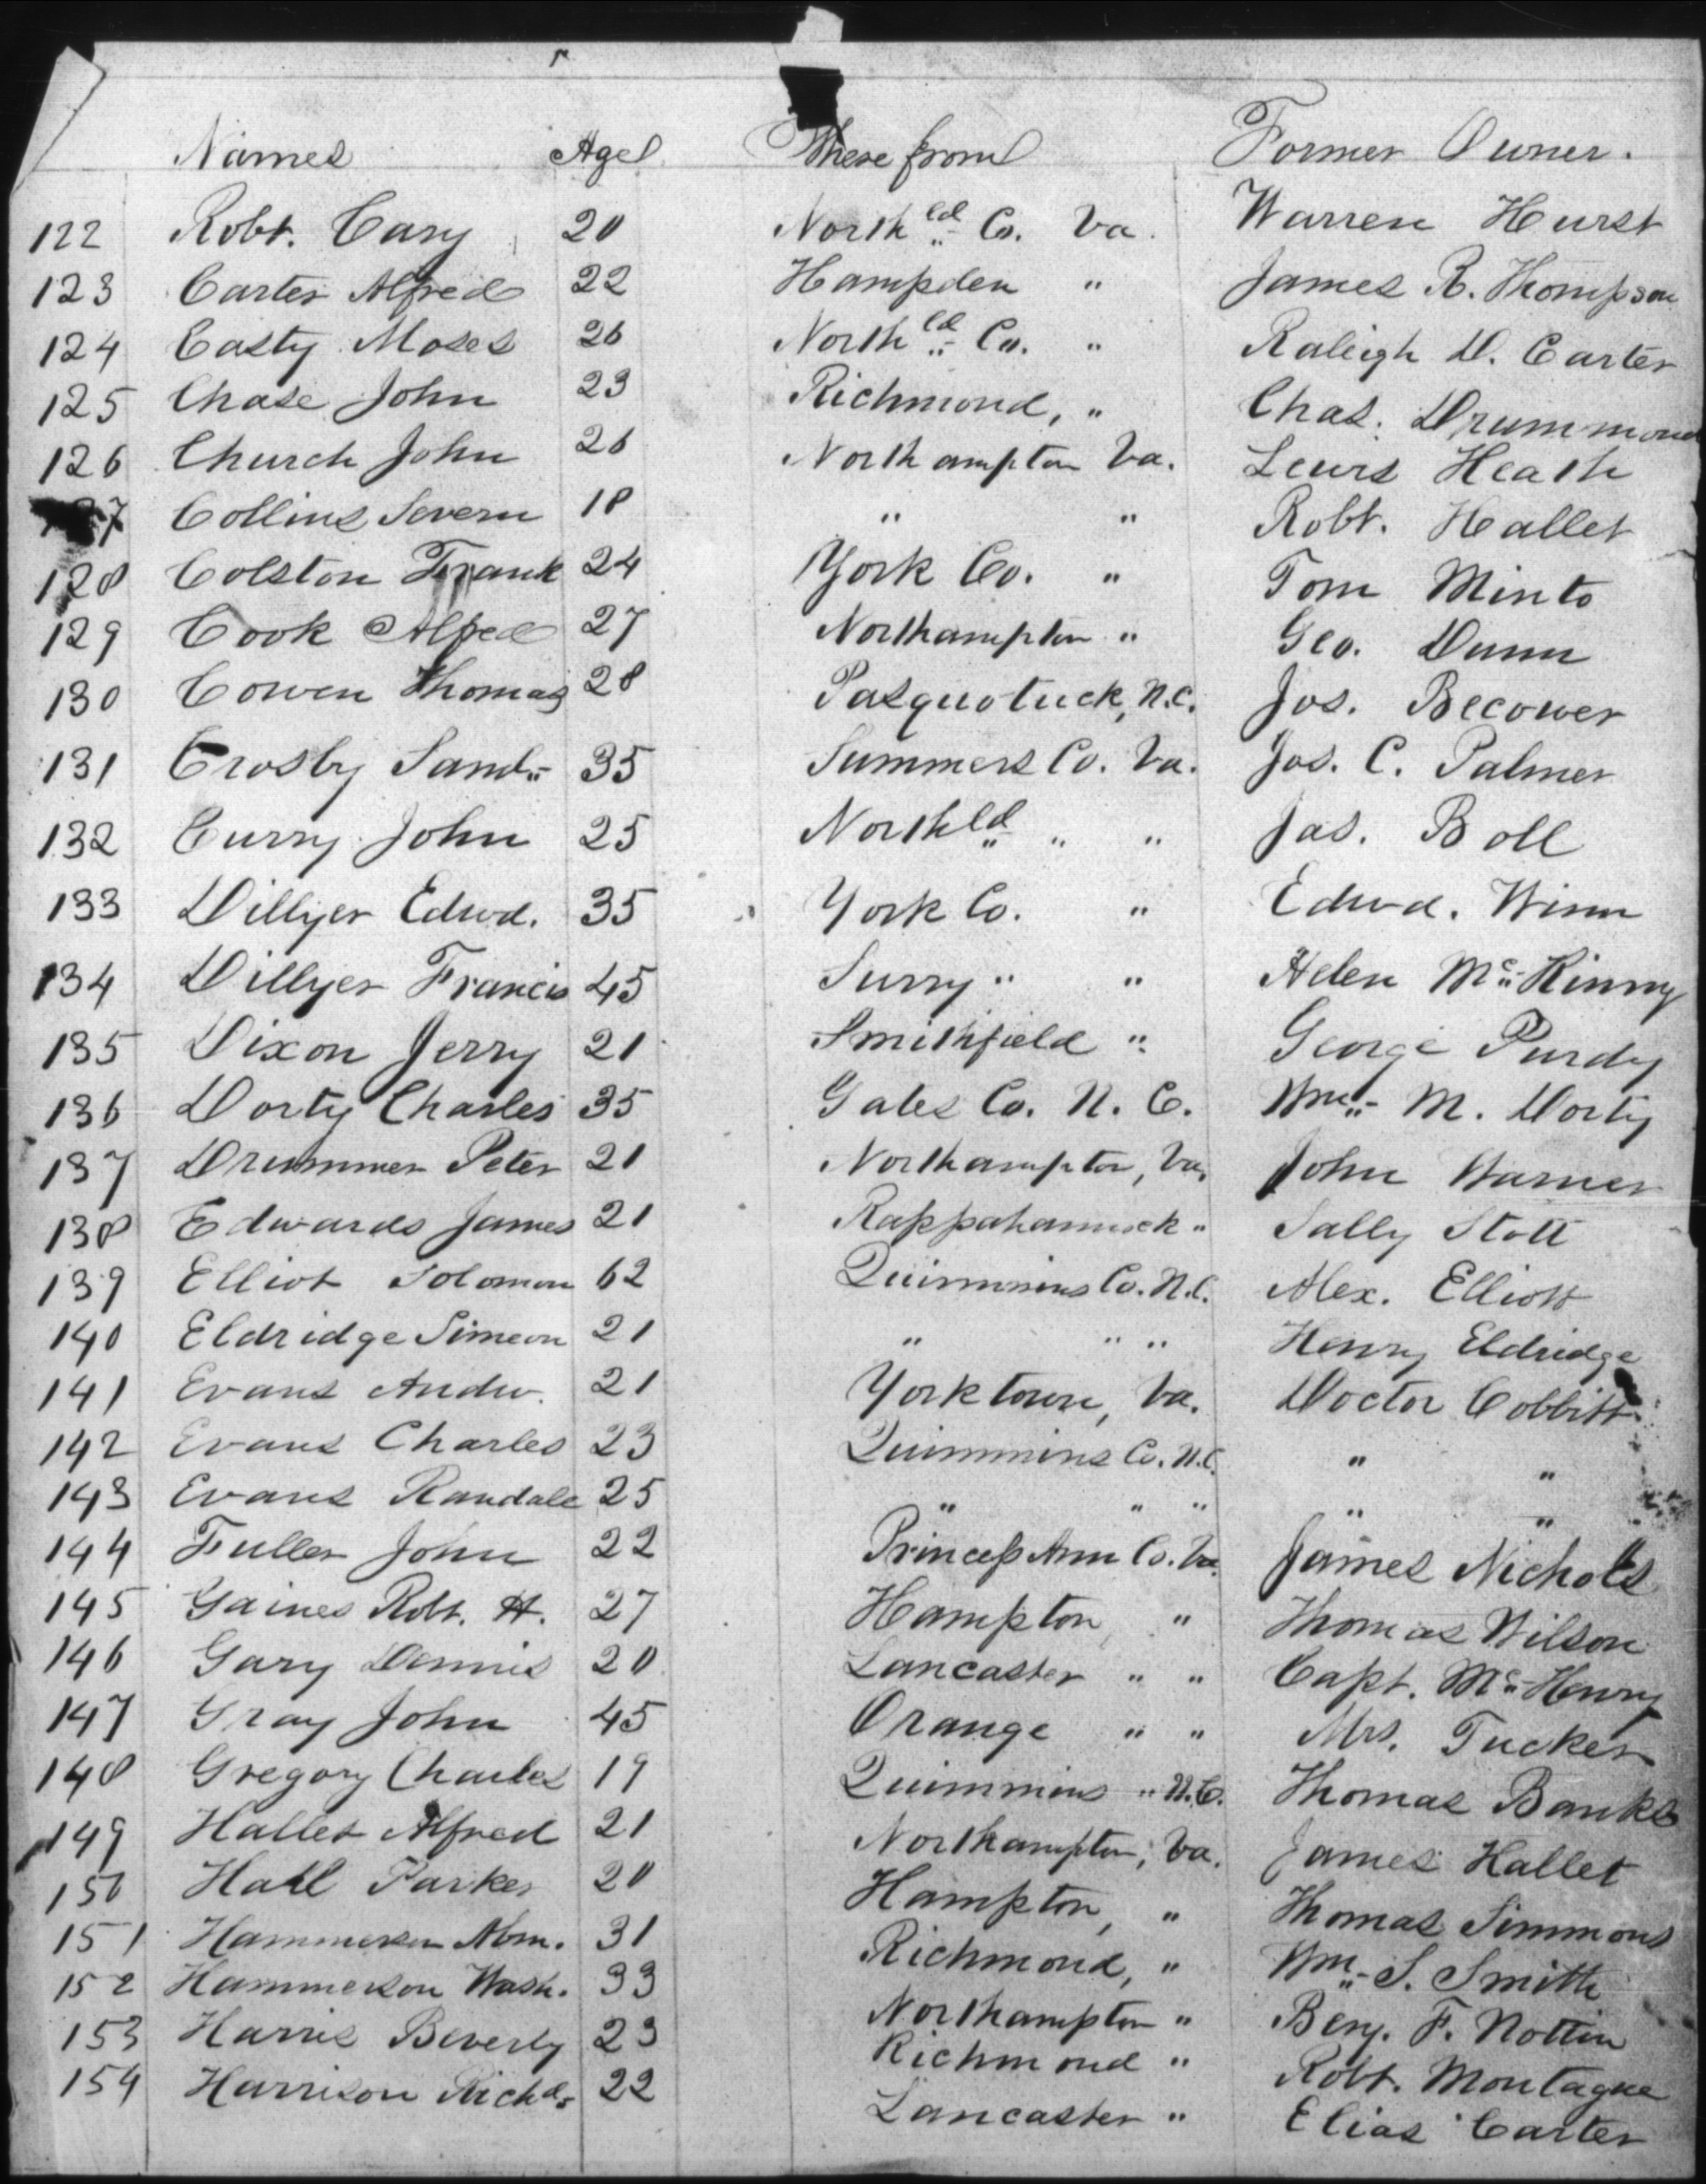 Names Age Where from Former Owner.
122 Robt. Cary 20 Northld Co. Va. Warren Hurst
123 Carter Alfred 22 Hampden " James R. Thompson
124 Casty Moses 26 Northld Co. " Raleigh D. Carter
125 Chase John 23 Richmond, " Chas. Drummond
126 Church John 26 Northampton Va. Lewis Heath
127 Collins Severn 18 " " Robt. Hallet
128 Colston Frank 24 York Co. " Tom Minto
129 Cook Alfred 27 Northampton " Geo. Dunn
130 Cowen Thomas 28 Pasquotuck, N.C. Jos. Becower
131 Crosby Sand. 35 Summers Co. Va. Jos. C. Palmer
132 Curry John 25 Northld " " Jas. Boll
133 Dillyer Edwd. 35 York Co. " Edwd. Winn
134 Dillyer Francis 45 Surry " " Helen Mc Kinny
135 Dixon Jerry 21 Smithfield " George Purdy
136 Dorty Charles 35 Gates Co. N. C. Wm. M. Dorty
137 Drummer Peter 21 Northampton, Va. John Warner
138 Edwards James 21 Rappahannock " Sally Stott
139 Elliot Solomon 62 Quimmins Co. N.C. Alex. Elliott
140 Eldridge Simeon 21 " " " Henry Eldridge
141 Evans Andw. 21 Yorktown, Va. Doctor Cobbitt
142 Evans Charles 23 Quimmins Co. N.C. " "
143 Evans Randale 25 " " " " "
144 Fuller John 22 Princess Ann Co. Va. James Nichols
145 Gaines Robt. H. 27 Hampton, " Thomas Wilson
146 Gary Dennis 20 Lancaster " " Capt. Mc Henry
147 Gray John 45 Orange " " Mrs. Tucker
148 Gregory Charles 19 Quimmins " N.C. Thomas Banks
149 Hallet Alfred 21 Northampton, Va. James Hallet
150 Hall Parker 20 Hampton, " Thomas Simmons
151 Hammerson Abm. 31 Richmond, " Wm. S. Smith
152 Hammerson Wash. 33 Northampton " Benj. F. Nottin
153 Harris Beverly 23 Richmond " Robt. Montague
154 Harrison Richd. 22 Lancaster " Elias Carter